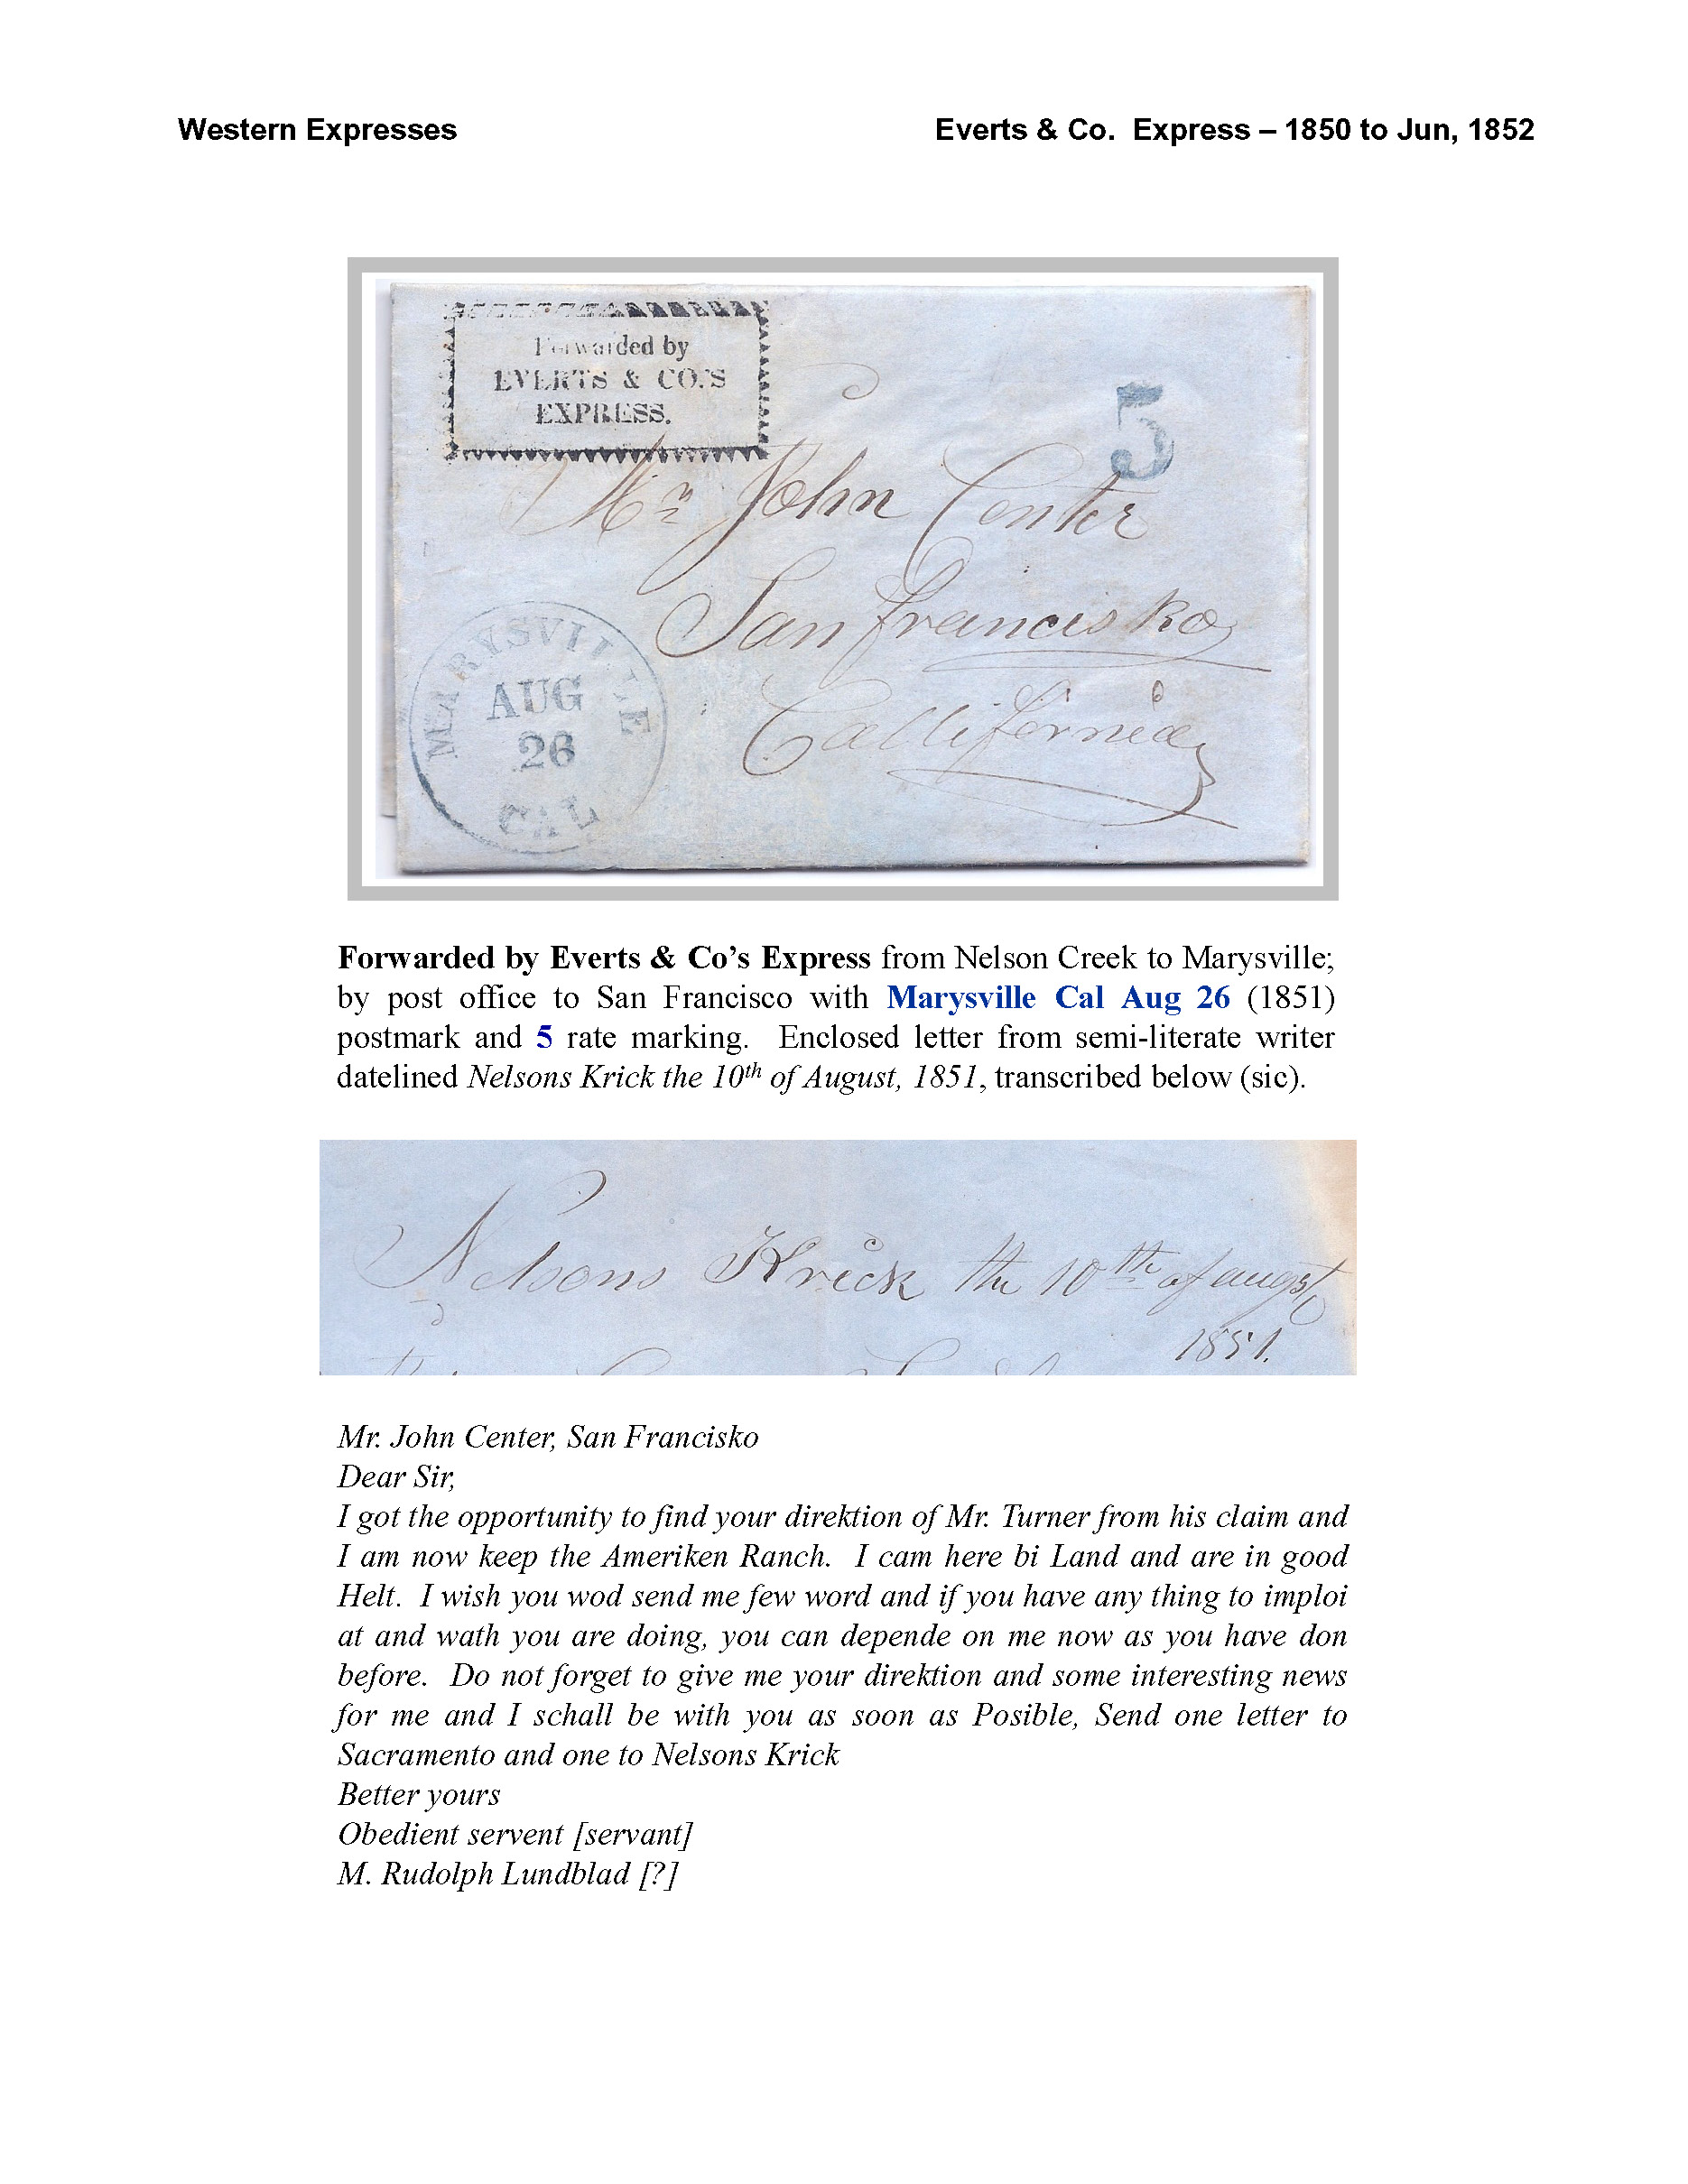 Western Expresses
Everts & Co.  Express – 1850 to Jun, 1852
Forwarded by
EVERTS & CO.'S
EXPRESS.
5
Mr John Center
San francisko
Callifornia
MARYSVILLE
AUG
26
CAL
Forwarded by Everts & Co’s Express from Nelson Creek to Marysville;
by post office to San Francisco with Marysville Cal Aug 26 (1851)
postmark and 5 rate marking.  Enclosed letter from semi-literate writer
datelined Nelsons Krick the 10th of August, 1851, transcribed below (sic).
Nelsons Krick the 10th of augst
1851.
Mr. John Center, San Francisko
Dear Sir,
I got the opportunity to find your direktion of Mr. Turner from his claim and
I am now keep the Ameriken Ranch.  I cam here bi Land and are in good
Helt.  I wish you wod send me few word and if you have any thing to imploi
at and wath you are doing, you can depende on me now as you have don
before.  Do not forget to give me your direktion and some interesting news
for me and I schall be with you as soon as Posible, Send one letter to
Sacramento and one to Nelsons Krick
Better yours
Obedient servent [servant]
M. Rudolph Lundblad [?]